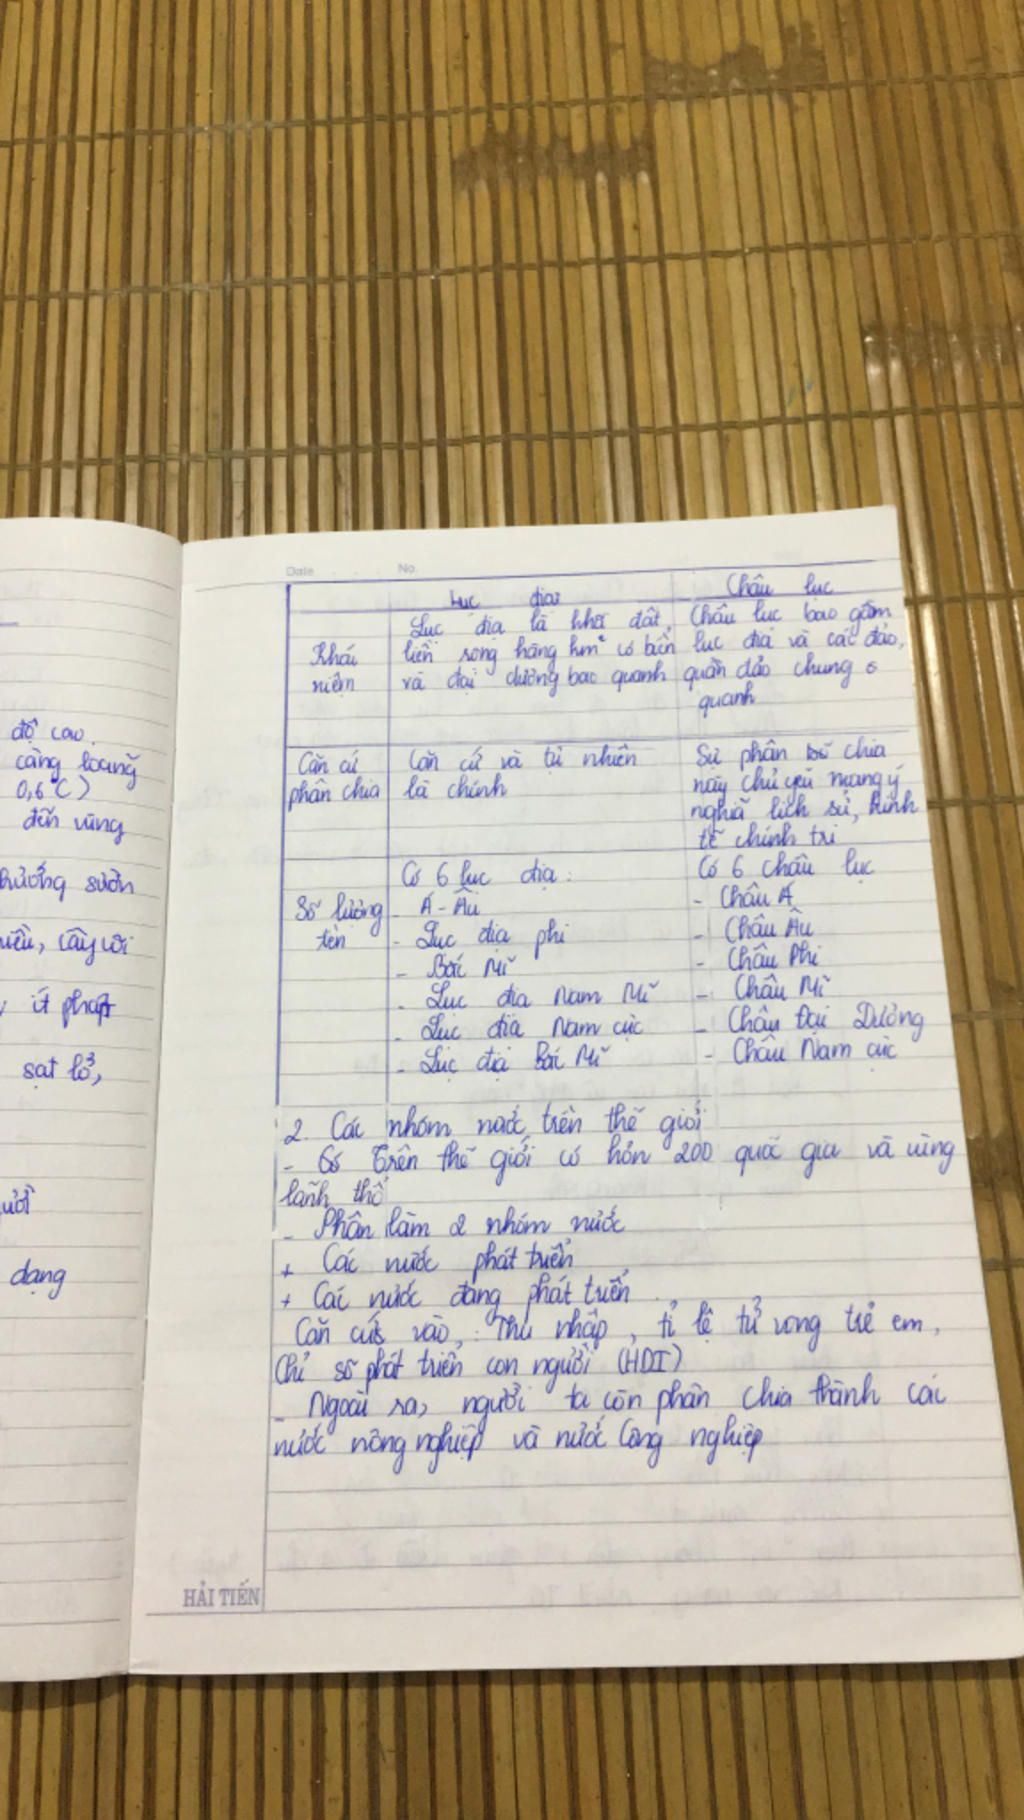 Date No.
Lục địa Châu lục
Khái niệm
Lục địa là khối đất
liền rộng hàng km² có biển
và đại dương bao quanh
Châu lục bao gồm
lục địa và các đảo,
quần đảo chung
quanh
Căn cứ
phân chia
Căn cứ và tự nhiên
là chính
Sự phân chia
này chủ yếu mang ý
nghĩa lịch sử, kinh
tế chính trị
Số lượng
tên
Có 6 lục địa:
- Á - Âu
- Lục địa phi
- Bắc Mĩ
- Lục địa Nam Mĩ
- Lục địa Nam cực
- Lục địa Bắc Mĩ
Có 6 châu lục
- Châu Á
- Châu Âu
- Châu Phi
- Châu Mĩ
- Châu Đại Dương
- Châu Nam cực
2. Các nhóm nước trên thế giới
- Trên thế giới có hơn 200 quốc gia và vùng
lãnh thổ
- Phân làm 2 nhóm nước
+ Các nước phát triển
+ Các nước đang phát triển
Căn cứ vào: Thu nhập, tỉ lệ tử vong trẻ em,
Chỉ số phát triển con người (HDI)
- Ngoài ra, người ta còn phân chia thành các
nước nông nghiệp và nước Công nghiệp
HẢI TIẾN
độ cao.
càng loãng
0,6°C)
đến vùng
hướng sườn
sạt lở,
dạng